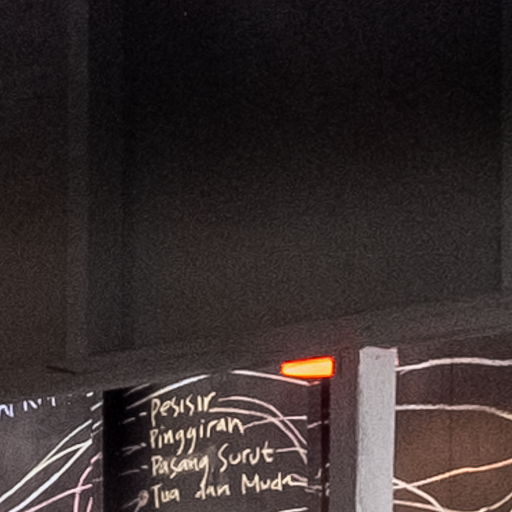 - Pesisir
- Pinggiran
- Pasang Surut
- Tua dan Muda